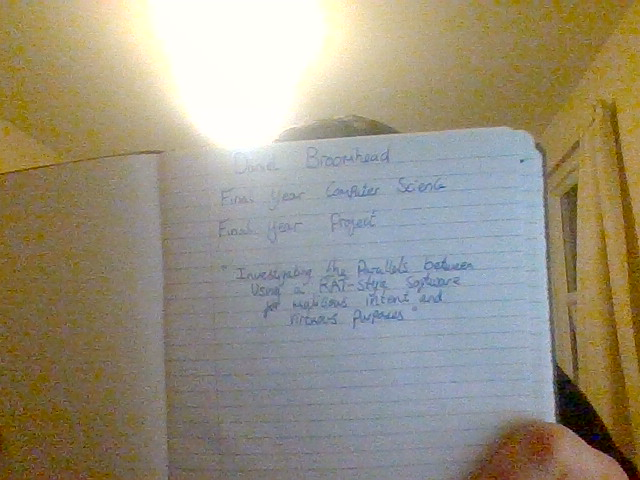 Daniel Broomhead
Final Year Computer Science
Final Year Project
"Investigating the Parallels between
Using a RAT-style Software
for malicious intent and
virtuous purposes"